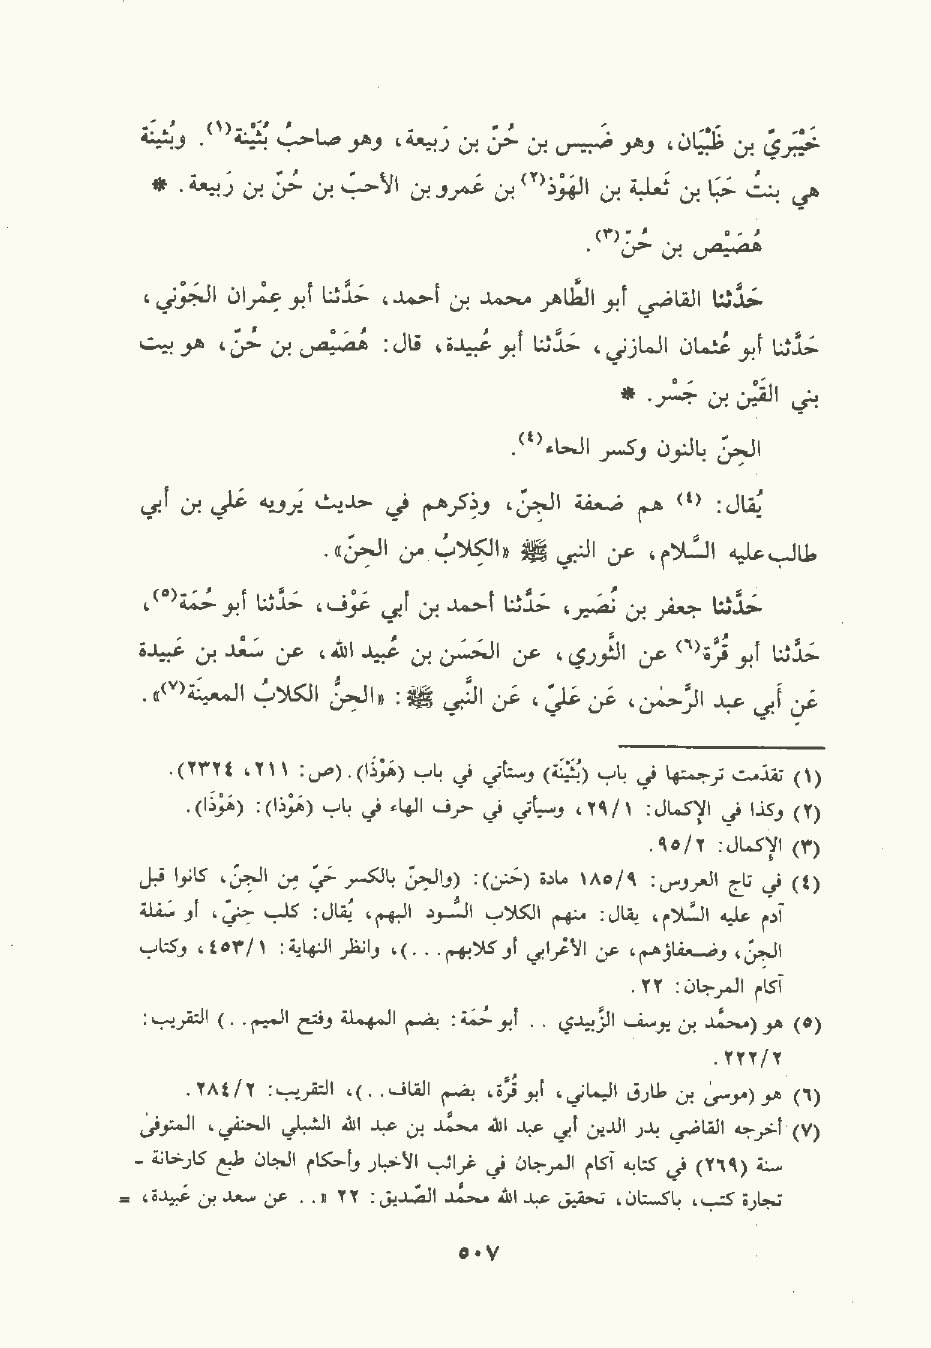 خَيْبَريّ بن ظَبْيَان، وهو ضَبيس بن حُنّ بن رَبيعة، وهو صاحبُ بُثَيْنة(١). وبُثينَة
هي بنتُ حَبَا بن ثَعلبة بن الهَوْذ(٢) بن عَمرو بن الأحبّ بن حُنّ بن رَبيعة. *
هُصَيْص بن حُنّ(٣).
حَدّثنا القاضي أبو الطَّاهر محمد بن أحمد، حَدَّثنا أبو عِمْران الجَوْني،
حَدَّثنا أبو عُثمان المازني، حَدَّثنا أبو عُبيدة، قال: هُصَيْص بن حُنّ، هو بيت
بني القَيْن بن جَسْر. *
الحِنّ بالنون وكسر الحاء(٤).
يُقال: (٤) هم ضعفة الجِنّ، وذِكرهم في حديث يَرويه عَلي بن أبي
طالب عليه السَّلام، عن النبي ﷺ «الكِلابُ من الحِنّ».
حَدَّثنا جعفر بن نُصَير، حَدَّثنا أحمد بن أبي عَوْف، حَدَّثنا أبو حُمَة(٥)،
حَدَّثنا أبو قُرَّة(٦) عن الثَّوري، عن الحَسَن بن عُبيد الله، عن سَعْد بن عَبيدة
عَن أَبي عبد الرَّحمٰن، عَن عَليّ، عَن النَّبي ﷺ: «الحِنُّ الكلابُ المعينَة(٧)».
(١) تقدَمت ترجمتها في باب (بُثَيْنَة) وستأتي في باب (هَوْذَا). (ص: ٢١١، ٢٣٢٤).
(٢) وكذا في الإِكمال: ٢٩/١، وسيأتي في حرف الهاء في باب (هَوْذا): (هَوْذا).
(٣) الإِكمال: ٩٥/٢.
(٤) في تاج العروس: ١٨٥/٩ مادة (حَنن): (والحِنّ بالكسر حَيّ مِن الجِنّ، كانوا قبل
آدم عليه السَّلام، يقال: منهم الكلاب السُّود البهم، يُقال: كلب حِنيّ، أو سَفلة
الجِنّ، وضعفاؤهم، عن الأعْرابي أو كلابهم. . .)، وانظر النهاية: ٤٥٣/١، وكتاب
آكام المرجان: ٢٢.
(٥) هو (محمَّد بن يوسف الزَّبيدي . . أبو حُمَة: بضم المهملة وفتح الميم. .) التقريب:
٢٢٢/٢.
(٦) هو (موسى بن طارق اليماني، أبو قُرَّة، بضم القاف. .)، التقريب: ٢٨٤/٢.
(٧) أخرجه القاضي بدر الدين أبي عبد الله محمَّد بن عبد الله الشبلي الحنفي، المتوفىٰ
سنة (٢٦٩) في كتابه آكام المرجان في غرائب الأخبار وأحكام الجان طبع كارخانة -
تجارة كتب، باكستان، تحقيق عبد الله محمَّد الصّديق: ٢٢ «. . عن سعد بن عَبيدة، =
٥٠٧